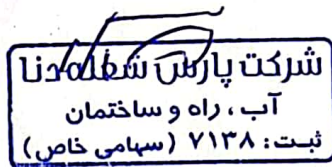 شرکت پارس شعله دنا
آب ، راه و ساختمان
ثبت : ۷۱۳۸ ( سهامی خاص )